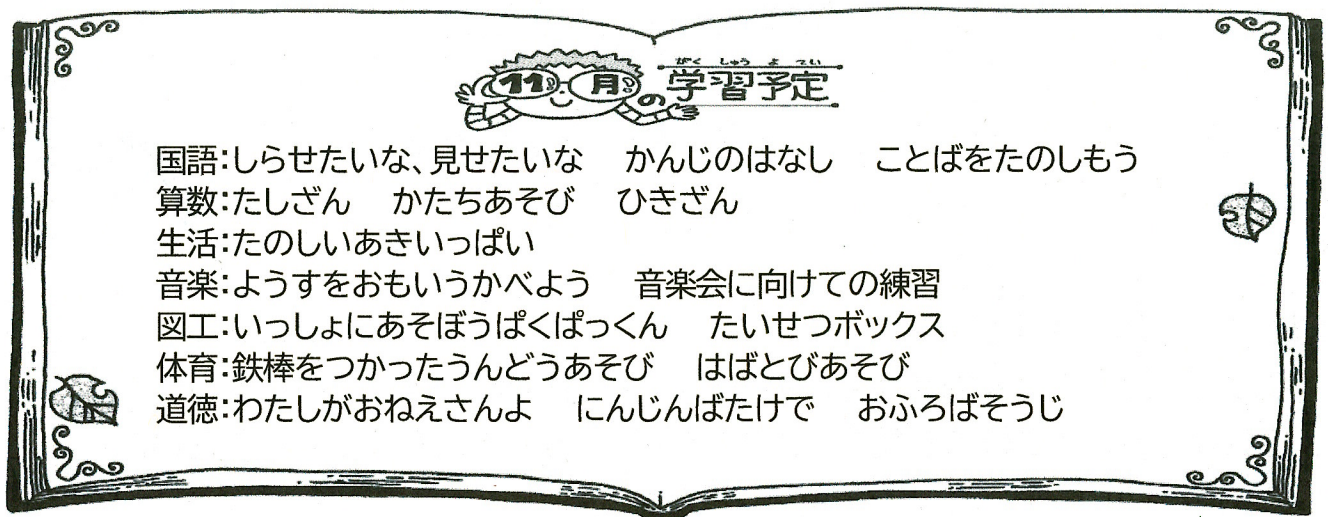 11月の学習予定
国語:しらせたいな、見せたいな　かんじのはなし　ことばをたのしもう
算数:たしざん　かたちあそび　ひきざん
生活:たのしいあきいっぱい
音楽:ようすをおもいうかべよう　音楽会に向けての練習
図工:いっしょにあそぼうぱくぱっくん　たいせつボックス
体育:鉄棒をつかったうんどうあそび　はばとびあそび
道徳:わたしがおねえさんよ　にんじんばたけで　おふろばそうじ